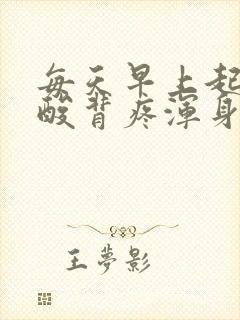 每天早上起
酸背疼浑身
王夢影